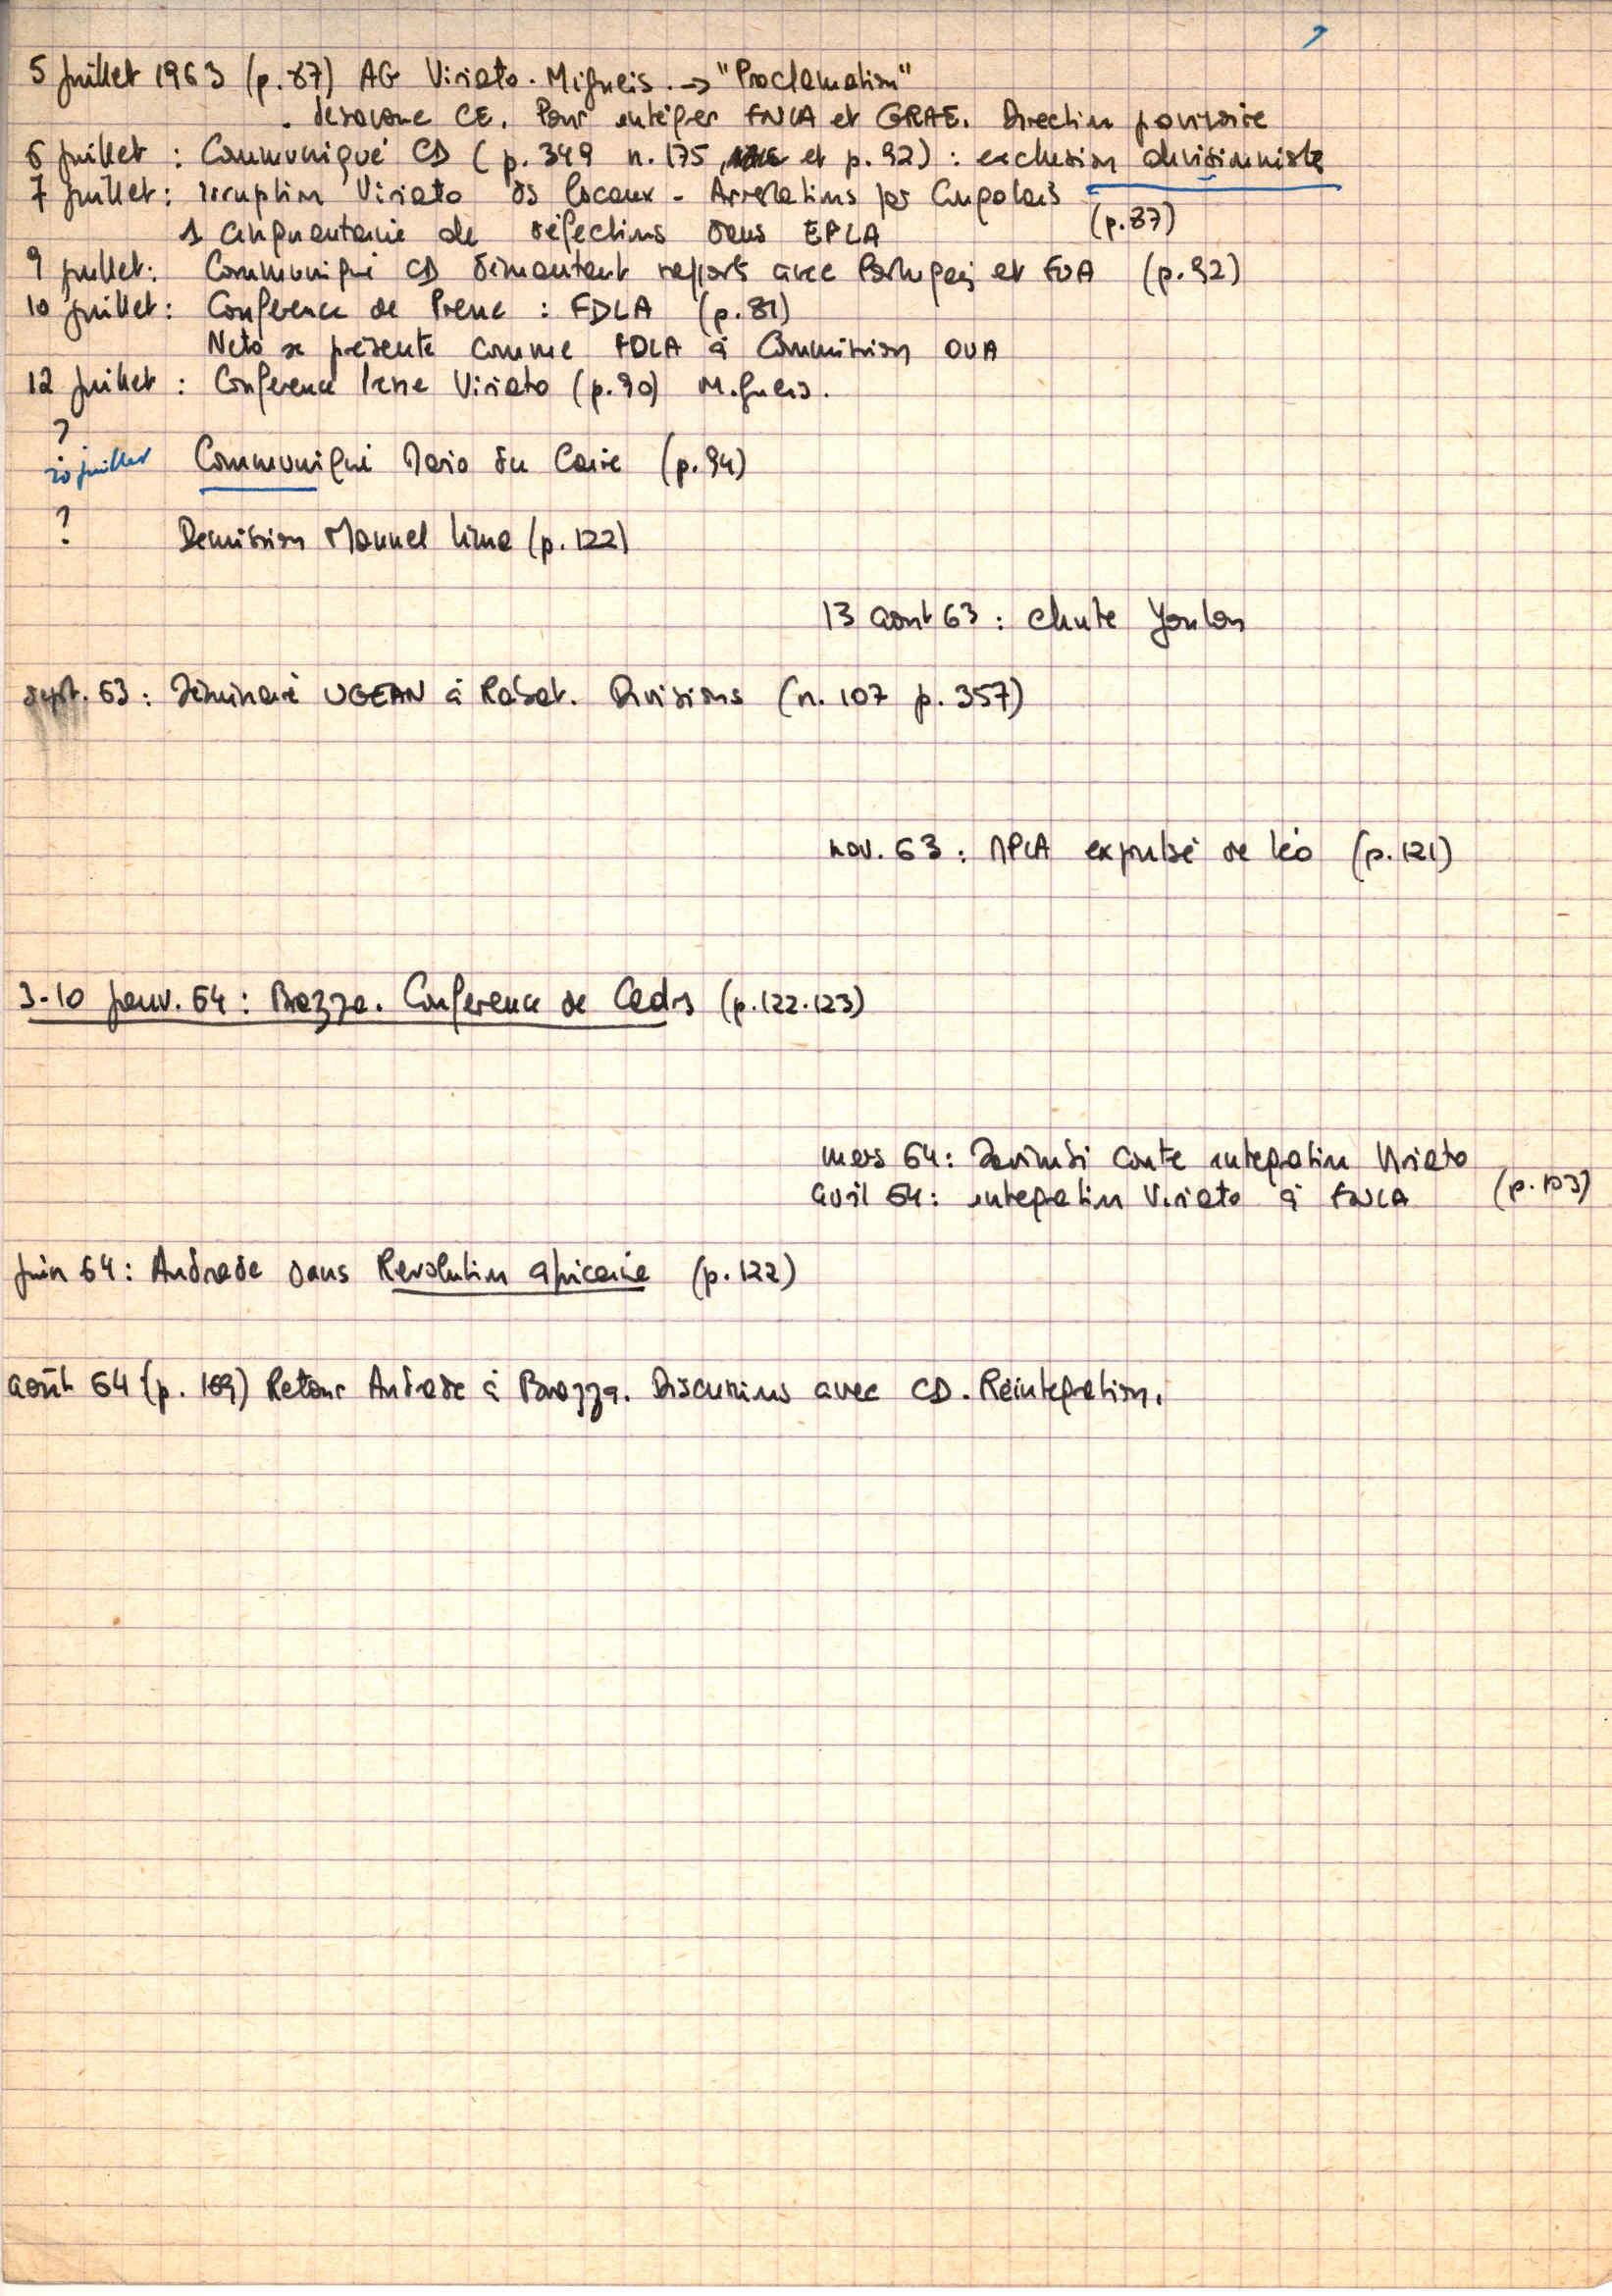 5 juillet 1963 (p. 87) AG Viriato. Migueis. → "Proclamation"
. désavoue CE. Pour intégrer FNLA et GRAE. Direction provisoire
6 juillet : Communiqué CD (p. 349 n. 175, et p. 92) : exclusion divisionniste
7 juillet : irruption Viriato ds locaux - Arrestations par Congolais
(p. 87)
1 cinquantaine de défections dans EPLA
9 juillet : Communiqué CD démentant rapports avec Portugais et FUA (p. 92)
10 juillet : Conférence de Presse : FDLA (p. 81)
Neto se présente comme FDLA à Commission OUA
12 juillet : Conférence Presse Viriato (p. 90) Migueis.
?
20 juillet Communiqué Mario du Caire (p. 94)
? Demission Manuel Lima (p. 122)
13 aout 63 : chute Youlou
sept. 63 : Séminaire UGEAN à Rabat. Divisions (n. 107 p. 357)
nov. 63 : MPLA expulsé de Léo (p. 121)
3-10 janv. 64 : Brazza. Conférence de Cadres (p. 122.123)
mars 64 : Savimbi contre intégration Viriato
avril 64 : intégration Viriato à FNLA (p. 103)
juin 64 : Andrade dans Révolution africaine (p. 122)
août 64 (p. 169) Retour Andrade à Brazza. Discussions avec CD. Réintégration.